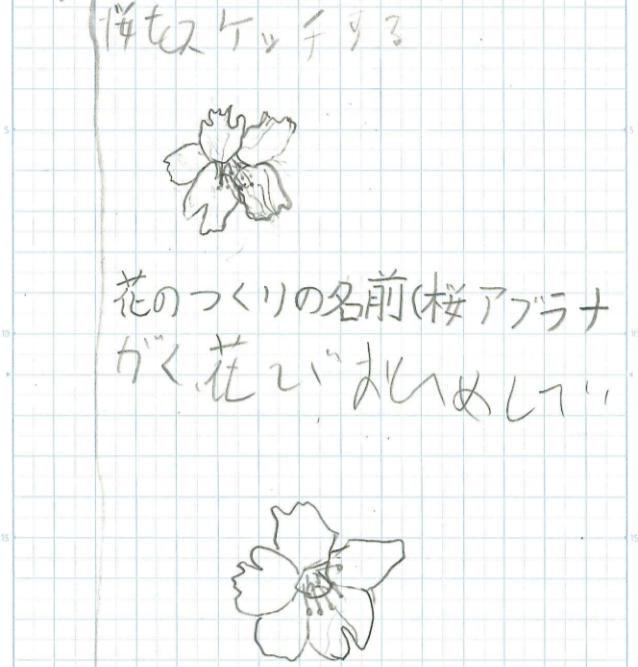 桜をスケッチする
5
5
花のつくりの名前(桜アブラナ
10
がく、花び おしべめしべ
15
15